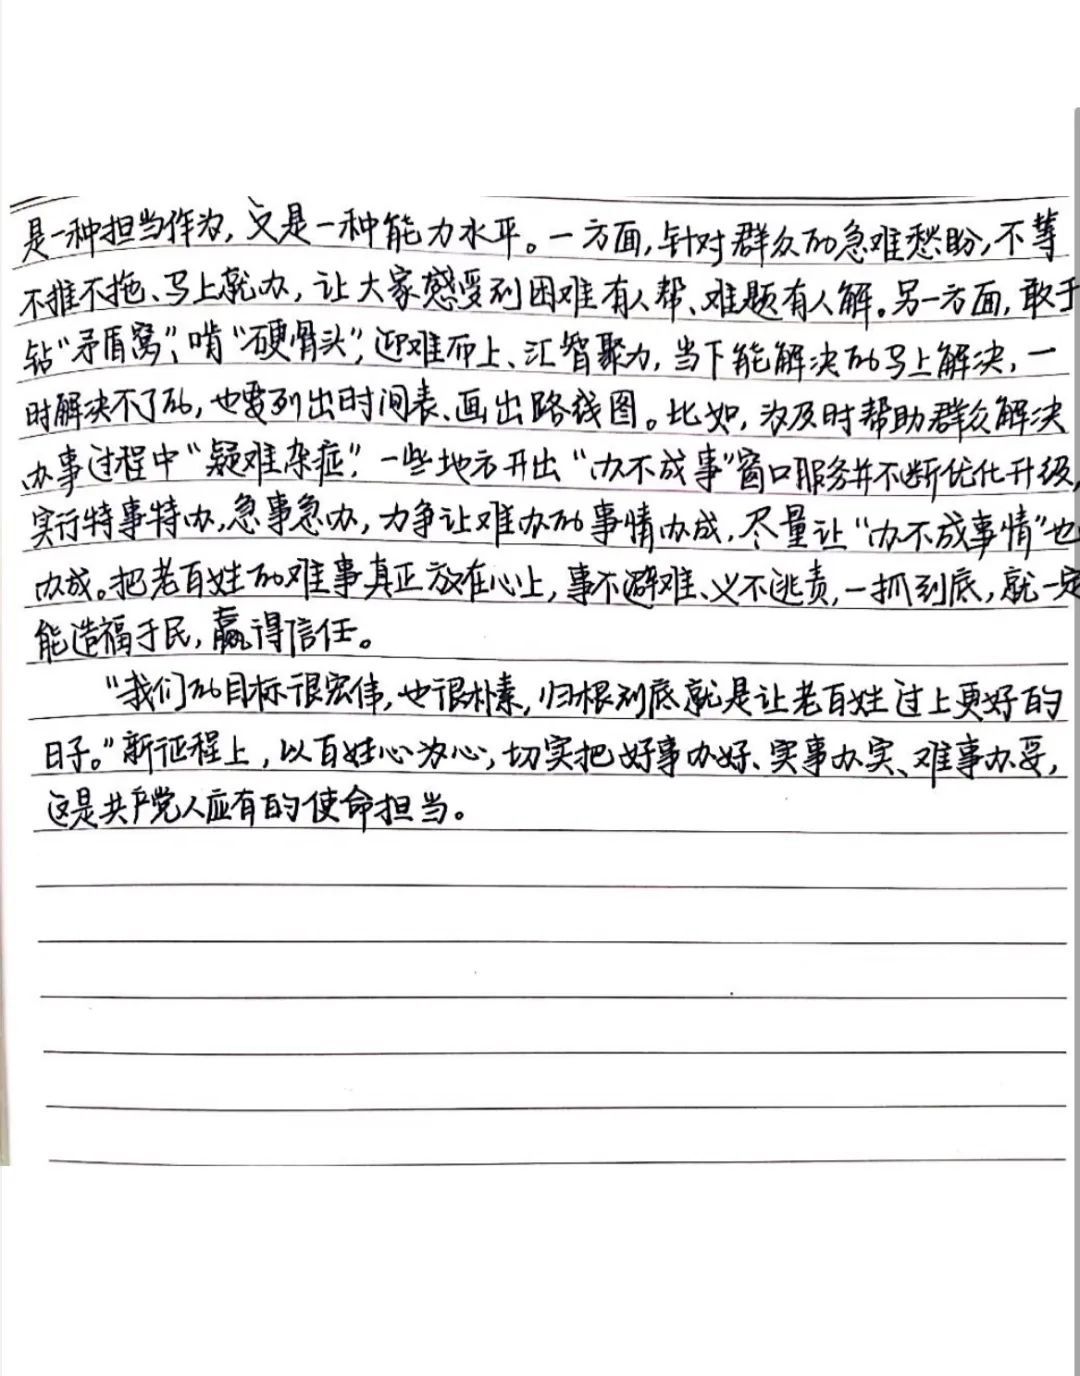 是一种担当作为,又是一种能力水平。一方面,针对群众的急难愁盼,不等
不推不拖、马上就办,让大家感受到困难有人帮、难题有人解。另一方面,敢于
钻“矛盾窝”,啃“硬骨头”,迎难而上、汇智聚力,当下能解决的马上解决,一
时解决不了的,也要列出时间表、画出路线图。比如,为及时帮助群众解决
办事过程中“疑难杂症”,一些地方开出“办不成事”窗口服务并不断优化升级,
实行特事特办,急事急办,力争让难办的事情办成,尽量让“办不成事情”也
办成。把老百姓的难事真正放在心上,事不避难、义不逃责,一抓到底,就一定
能造福于民,赢得信任。
“我们的目标很宏伟,也很朴素,归根到底就是让老百姓过上更好的
日子。”新征程上,以百姓心为心,切实把好事办好、实事办实、难事办妥,
这是共产党人应有的使命担当。